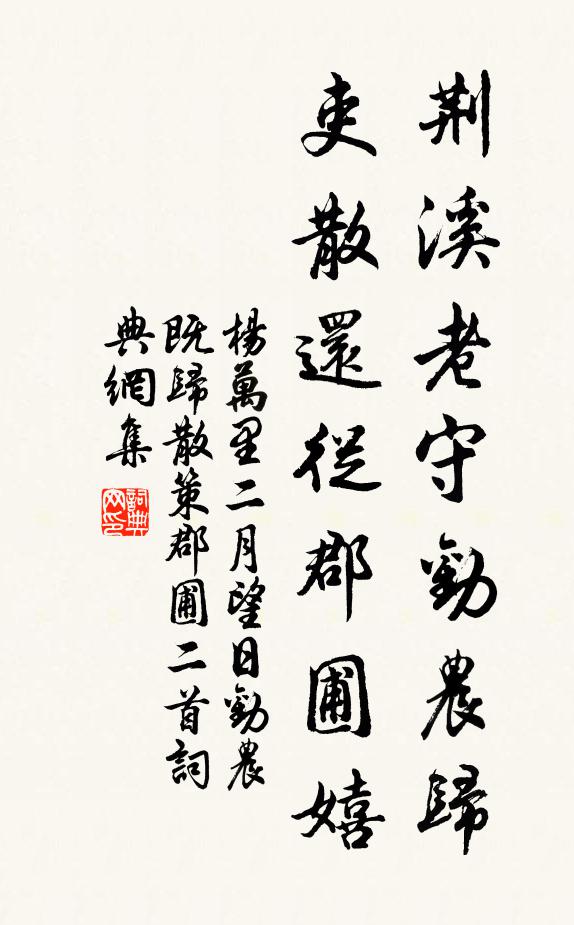 荆溪老守勸農歸
吏散還從郡圃嬉
楊萬里二月望日勸農
既歸散策郡圃二首詞
典網集
詞典网印